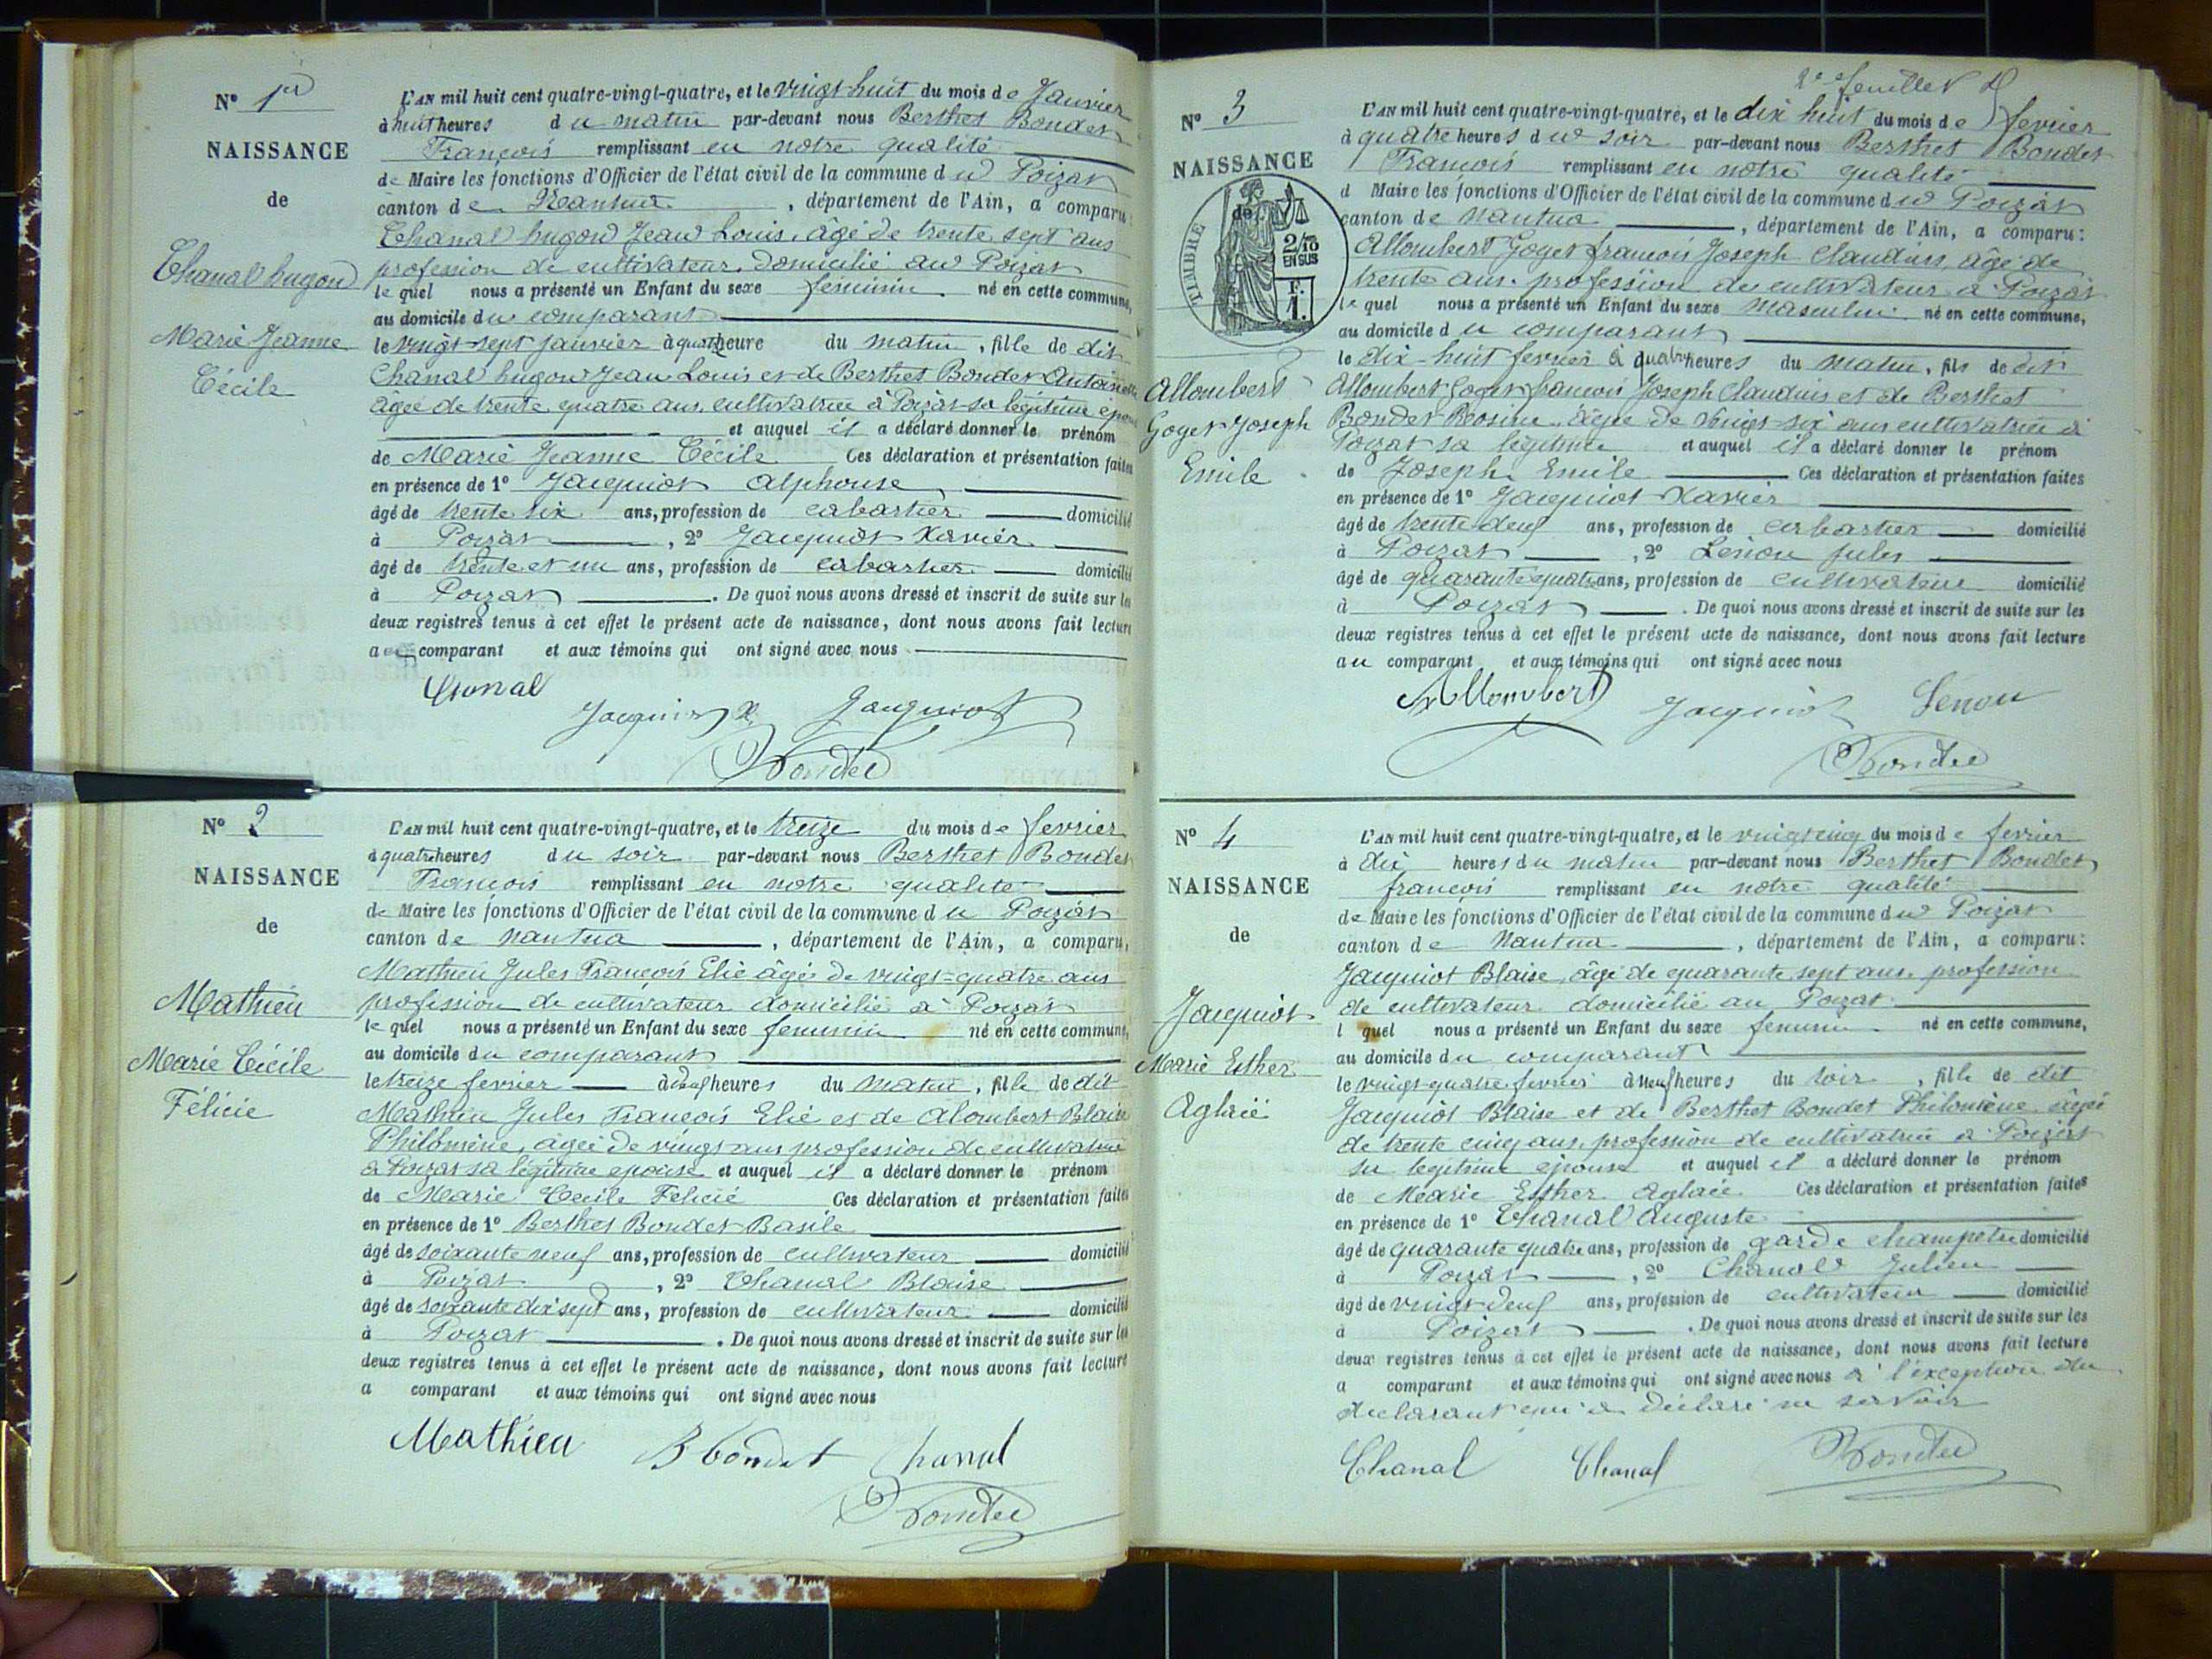 N° 1er
NAISSANCE
de
Chanal hugon
Marie Jeanne
Cécile
L'AN mil huit cent quatre-vingt-quatre, et le vingt huit du mois de Janvier
à huit heures du matin par-devant nous Berthet Bondet
François remplissant en notre qualité
de Maire les fonctions d'Officier de l'état civil de la commune du Poizat
canton de Nantua, département de l'Ain, a comparu:
Chanal hugon Jean Louis, âgé de trente sept ans
profession de cultivateur domicilié au Poizat
lequel nous a présenté un Enfant du sexe feminin né en cette commune,
au domicile du comparant
le vingt-sept janvier à quatre heure du matin, fille de dit
Chanal hugon Jean Louis et de Berthet Bondet Antoinette
âgée de trente quatre ans, cultivatrice à Poizat sa légitime épouse
et auquel il a déclaré donner le prénom
de Marie Jeanne Cécile Ces déclaration et présentation faites
en présence de 1° Jacquiot Alphonse
âgé de trente six ans, profession de cabartier domicilié
à Poizat, 2° Jacquiot Xavier
âgé de trente et un ans, profession de cabartier domicilié
à Poizat. De quoi nous avons dressé et inscrit de suite sur les
deux registres tenus à cet effet le présent acte de naissance, dont nous avons fait lecture
au comparant et aux témoins qui ont signé avec nous
Chanal
Jacquiot X. Jacquiot
Bondet
N° 2
NAISSANCE
de
Mathieu
Marie Cécile
Félicie
L'AN mil huit cent quatre-vingt-quatre, et le treize du mois de fevrier
à quatre heures du soir par-devant nous Berthet Bondet
François remplissant en notre qualite
de Maire les fonctions d'Officier de l'état civil de la commune du Poizat
canton de Nantua, département de l'Ain, a comparu,
Mathieu Jules François Elie âgé de vingt-quatre ans
profession de cultivateur domicilié à Poizat
lequel nous a présenté un Enfant du sexe feminin né en cette commune,
au domicile du comparant
le treize fevrier à heures du matin, fille de dit
Mathieu Jules François Elie et de Alombert Blaise
Philomène, agée de vingt ans profession de cultivatrice
à Poizat sa légitime epouse et auquel il a déclaré donner le prénom
de Marie Cecile Felicié Ces déclaration et présentation faites
en présence de 1° Berthet Bondet Basile
âgé de soixante neuf ans, profession de cultivateur domicilié
à Poizat, 2° Chanal Blaise
âgé de soixante dix sept ans, profession de cultivateur domicilié
à Poizat. De quoi nous avons dressé et inscrit de suite sur les
deux registres tenus à cet effet le présent acte de naissance, dont nous avons fait lecture
a comparant et aux témoins qui ont signé avec nous
Mathieu B bondet Chanal
Bondet
2e feuillet
N° 3
NAISSANCE
de
TIMBRE
2/10
EN SUS
F.
1.
Allombert
Goget Joseph
Emile
L'AN mil huit cent quatre-vingt-quatre, et le dix huit du mois de fevrier
à quatre heures du soir par-devant nous Berthet Bondet
François remplissant en notre qualité
d Maire les fonctions d'Officier de l'état civil de la commune du Poizat
canton de Nantua, département de l'Ain, a comparu:
Allombert Goget francois Joseph Claudius, âgé de
trente ans. profession de cultivateur à Poizat
lequel nous a présenté un Enfant du sexe masculin né en cette commune,
au domicile du comparant
le dix-huit fevrier à quatre heures du matin, fils de dit
Allombert Goget francois Joseph Claudius et de Berthet
Bondet Rosine âgée de vingt-six ans cultivatrice à
Poizat sa légitime et auquel il a déclaré donner le prénom
de Joseph Emile Ces déclaration et présentation faites
en présence de 1° Jacquiot Xavier
âgé de trente-deux ans, profession de cabartier domicilié
à Poizat, 2° Lenou Jules
âgé de quarante quatre ans, profession de cultivateur domicilié
à Poizat. De quoi nous avons dressé et inscrit de suite sur les
deux registres tenus à cet effet le présent acte de naissance, dont nous avons fait lecture
au comparant et aux témoins qui ont signé avec nous
Allombert Jacquiot Lenou
Bondet
N° 4
NAISSANCE
de
Jacquiot
Marie Esther
Aglaïé
L'AN mil huit cent quatre-vingt-quatre, et le vingt cinq du mois de fevrier
à dix heures du matin par-devant nous Berthet Bondet
françois remplissant en notre qualité
de Maire les fonctions d'Officier de l'état civil de la commune du Poizat
canton de Nantua, département de l'Ain, a comparu:
Jacquiot Blaise, âgé de quarante sept ans. profession
de cultivateur domicilié au Poizat
l quel nous a présenté un Enfant du sexe feminin né en cette commune,
au domicile du comparant
le vingt-quatre fevrier à neuf heures du soir, fille de dit
Jacquiot Blaise et de Berthet Bondet Philomène âgée
de trente cinq ans. profession de cultivatrice à Poizat
sa legitime épouse et auquel il a déclaré donner le prénom
de Marie Esther Aglaée Ces déclaration et présentation faites
en présence de 1° Chanal Auguste
âgé de quarante quatre ans, profession de garde champetre domicilié
à Poizat, 2° Chanal Julien
âgé de vingt-deux ans, profession de cultivateur domicilié
à Poizat. De quoi nous avons dressé et inscrit de suite sur les
deux registres tenus à cet effet le présent acte de naissance, dont nous avons fait lecture
a comparant et aux témoins qui ont signé avec nous à l'exception du
declarant qui a déclaré ne savoir
Chanal Chanal Bondet